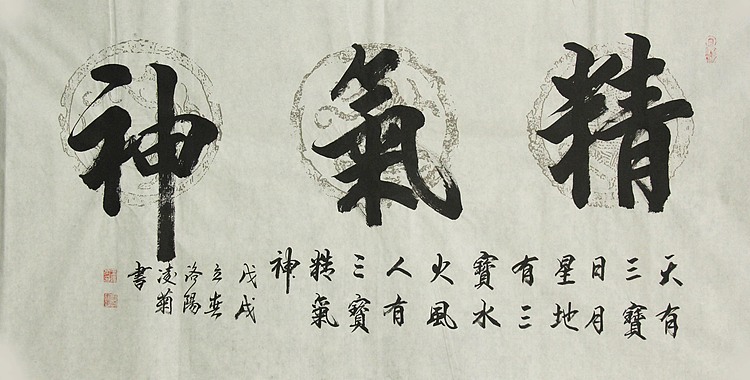 精氣神
天有
三寶
日月
星地
有三
寶水
火風
人有
三寶
精氣
神
戊戌
立春
洛陽
凌菊
書